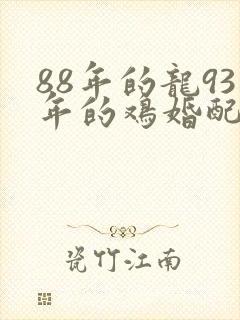 88年的龍93
年的鸡婚配
瓷竹江南